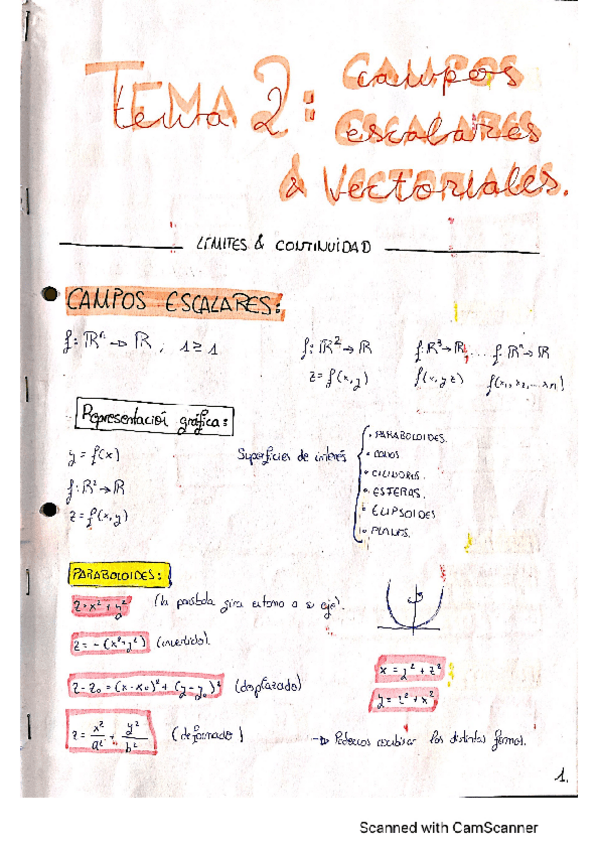 TEMA 2: CAMPOS
tema 2: campos
ESCALARES
escalares
& VECTORIALES.
LÍMITES & CONTINUIDAD
CAMPOS ESCALARES:
f: ℝⁿ → ℝ, n ≥ 1
f: ℝ² → ℝ
z = f(x,y)
f: ℝ³ → ℝ, ... f: ℝⁿ → ℝ
f(x,y,z) f(x₁,x₂,...xn)
Representació gráfica:
y = f(x)
f: ℝ² → ℝ
z = f(x,y)
Superficies de interés
• PARABOLOIDES.
• CONOS
• CILINDROS.
• ESFERAS.
• ELIPSOIDES
• PLANOS.
PARABOLOIDES:
z = x² + y² (la parábola gira entorno a su eje).
z = -(x²+y²) (invertido).
z - z₀ = (x-x₀)² + (y-y₀)² (desplazado)
z = x²/a² + y²/b² (deformado)
x = y² + z²
y = z² + x²
→ Podemos combinar las distintas formas.
1.
Scanned with CamScanner